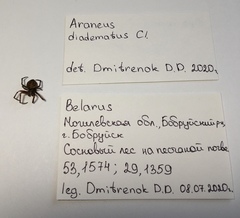 Araneus
diadematus Cl.
det. Dmitrenok D.D. 2020г.
Belarus
Могилевская обл., Бобруйский р-н
г. Бобруйск
Сосновый лес на песчаной почве
53,1574; 29,1359
leg. Dmitrenok D.D. 08.07.2020г.